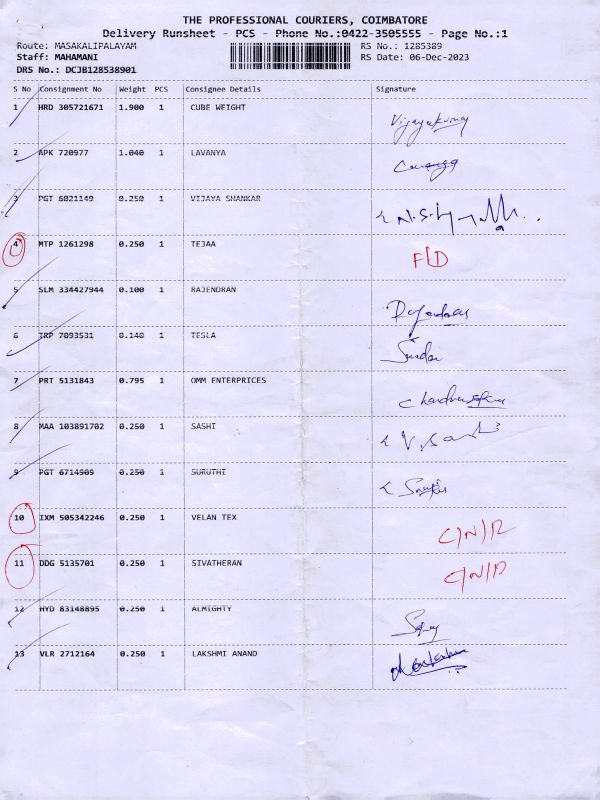 THE PROFESSIONAL COURIERS, COIMBATORE
Delivery Runsheet - PCS - Phone No.:0422-3505555 - Page No.:1
Route: MASAKALIPALAYAM RS No.: 1285389
Staff: MAHAMANI RS Date: 06-Dec-2023
DRS No.: DCJB128538901
S No Consignment No Weight PCS Consignee Details Signature
1 HRD 305721671 1.900 1 CUBE WEIGHT Vijayakumar
2 APK 720977 1.040 1 LAVANYA
3 PGT 6021149 0.250 1 VIJAYA SHANKAR
4 MTP 1261298 0.250 1 TEJAA F/D
5 SLM 334427944 0.100 1 RAJENDRAN Rajendran
6 TRP 7093531 0.140 1 TESLA Sundar
7 PRT 5131843 0.795 1 OMM ENTERPRICES
8 MAA 103891702 0.250 1 SASHI
9 PGT 6714909 0.250 1 SURUTHI
10 IXM 505342246 0.250 1 VELAN TEX C/N/R
11 DDG 5135701 0.250 1 SIVATHERAN
12 HYD 83148895 0.250 1 ALMIGHTY
13 VLR 2712164 0.250 1 LAKSHMI ANAND